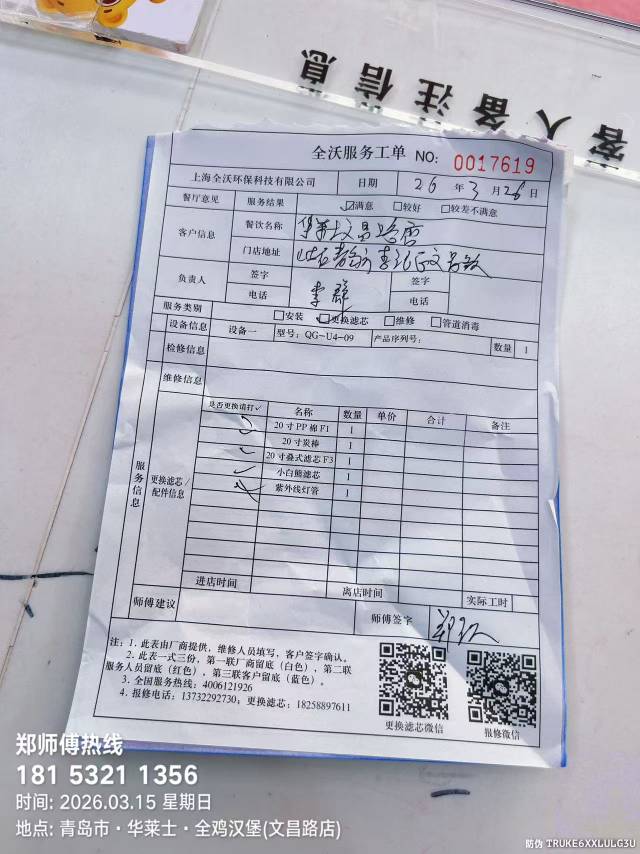 客人备注信息
全沃服务工单 NO: 0017619
上海全沃环保科技有限公司 日期 26 年 3 月 26 日
餐厅意见 服务结果 ☑满意 □较好 □较差不满意
客户信息 餐饮名称 华莱士文昌路店
门店地址
负责人 签字 李群 签字
电话 电话
服务类别 □安装 ☑更换滤芯 □维修 □管道消毒
设备信息 设备一 型号: QG-U4-09 产品序列号: 数量 1
检修信息
维修信息
服务信息
更换滤芯/配件信息
是否更换请打✓ 名称 数量 单价 合计 备注
20寸PP棉F1 1
20寸炭棒 1
20寸叠式滤芯F3 1
小白熊滤芯 1
紫外线灯管 1
进店时间 离店时间 实际工时
师傅建议 师傅签字
注: 1. 此表由厂商提供, 维修人员填写, 客户签字确认。
2. 此表一式三份, 第一联厂商留底 (白色), 第二联
服务人员留底 (红色), 第三联客户留底 (蓝色)。
3. 全国服务热线: 4006121926
4. 报修电话: 13732292730; 更换滤芯: 18258897611
更换滤芯微信 报修微信
郑师傅热线
181 5321 1356
时间: 2026.03.15 星期日
地点: 青岛市·华莱士·全鸡汉堡(文昌路店)
防伪 TRUKE6XXLULG3U